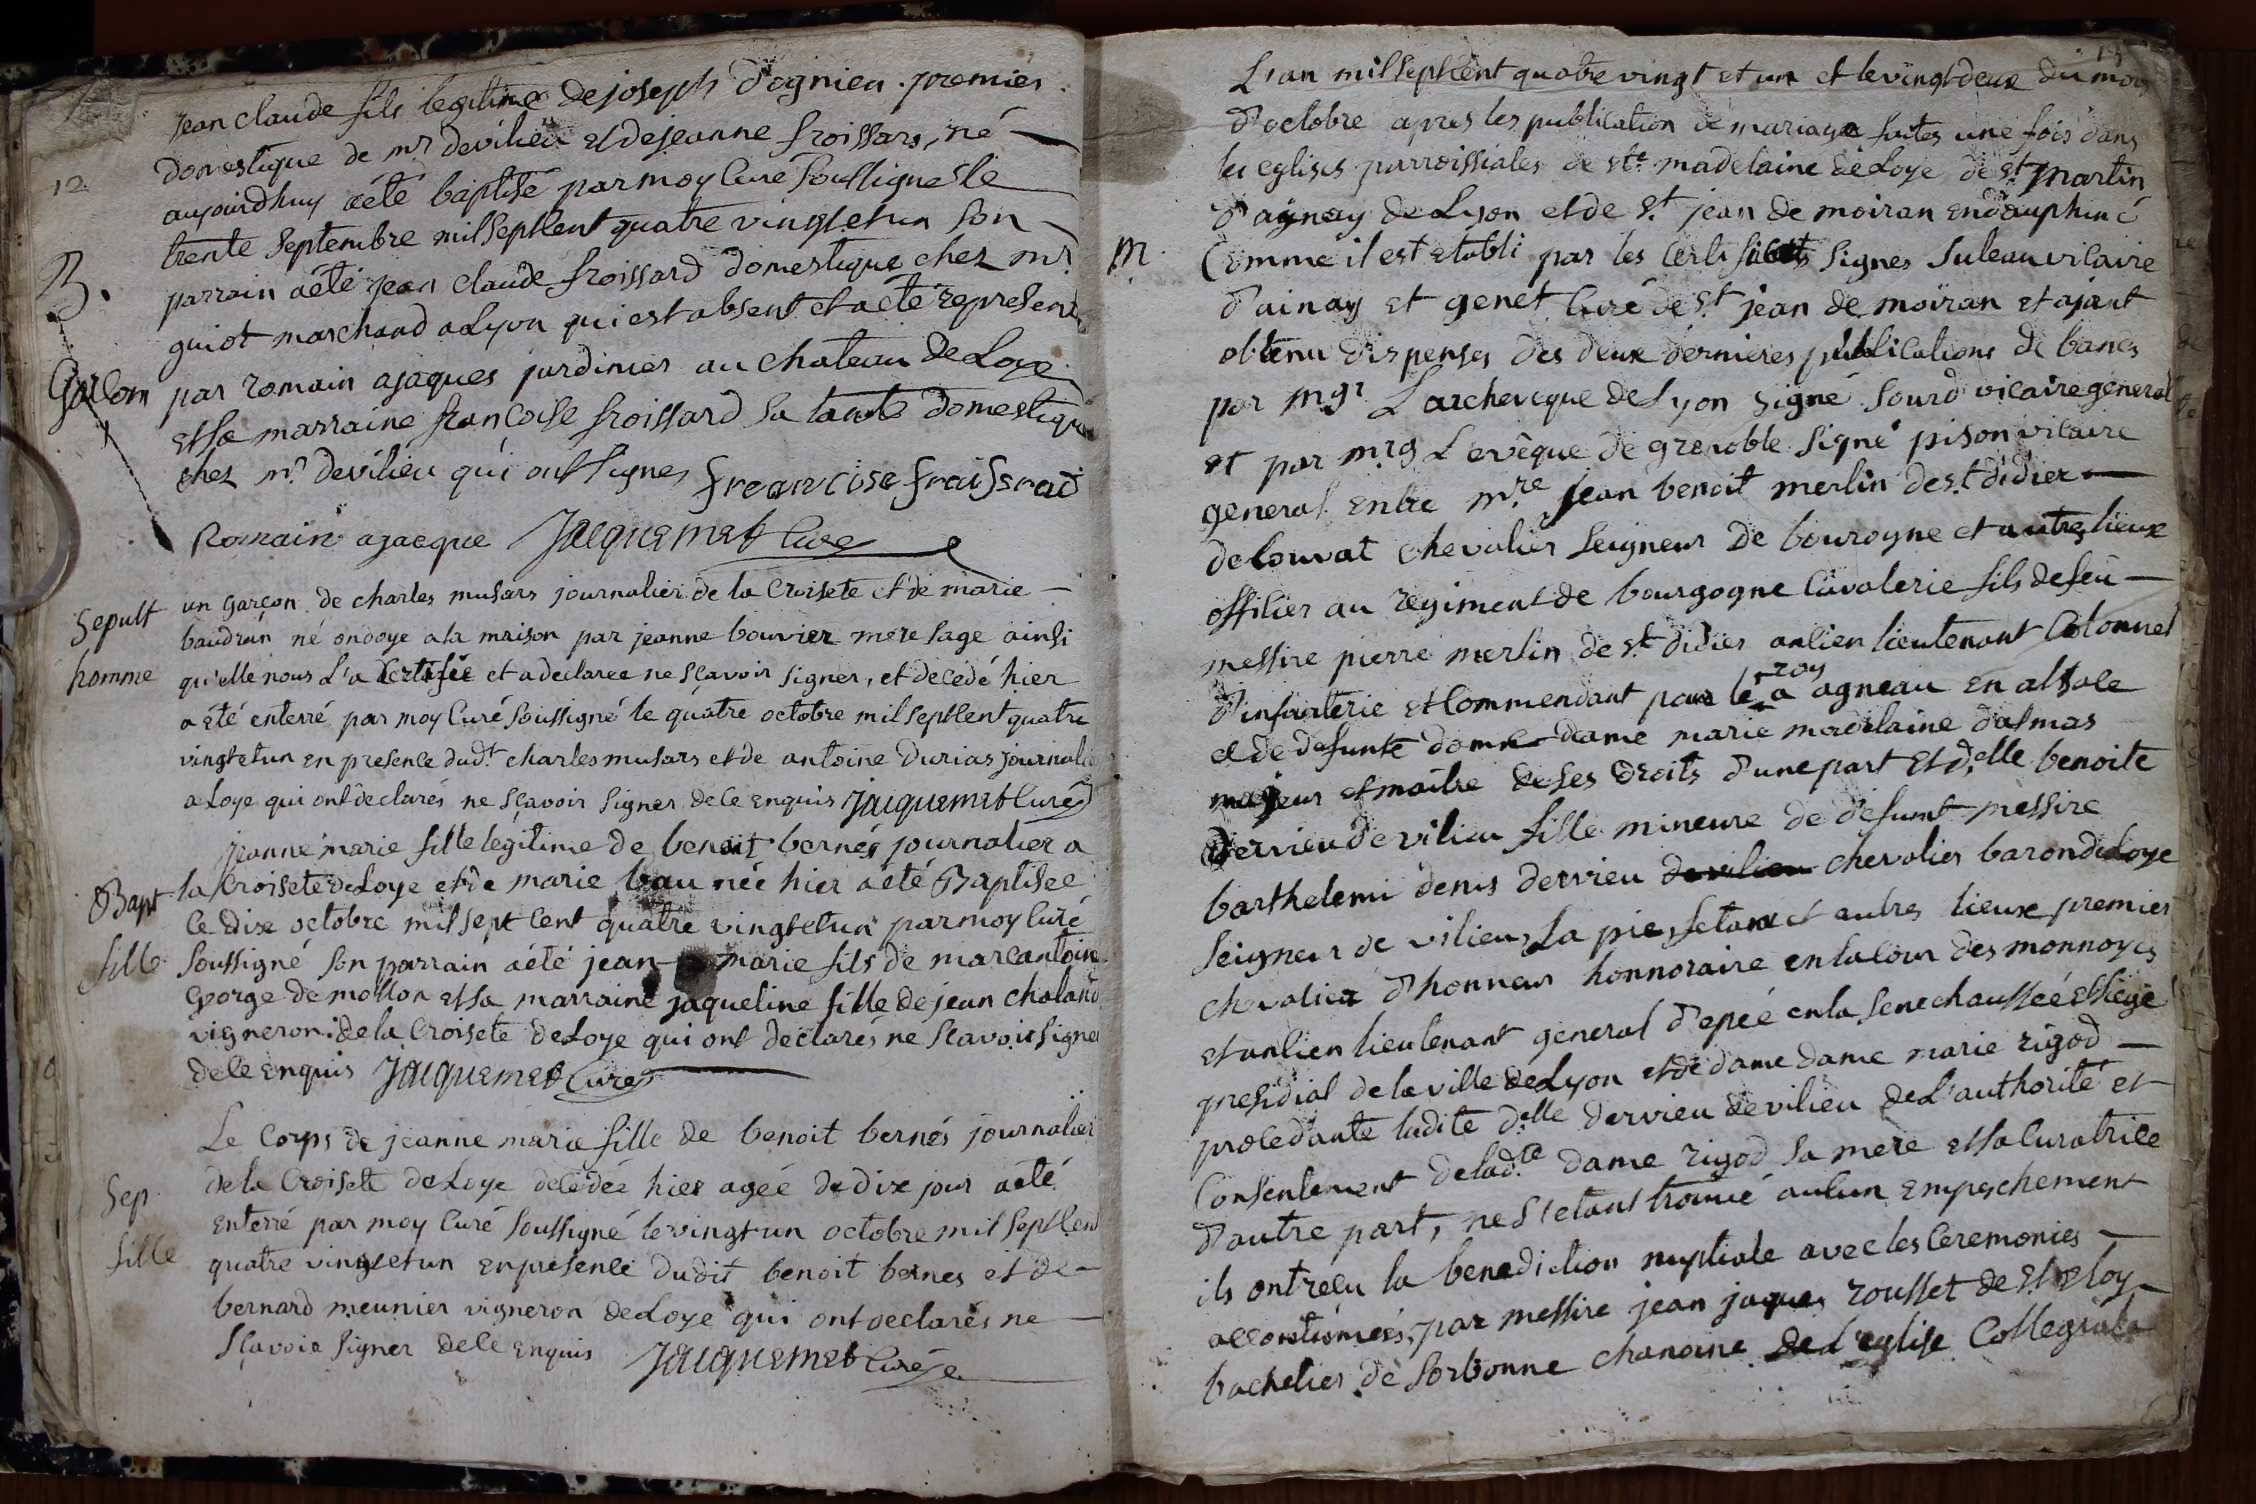 12
B.
Garcon
Jean claude fils legitime de joseph dagnieu premier
domestique de mr. devilieu et de jeanne froissars, né
aujourdhuy aété baptisé par moy curé soussigné le
trente septembre mil sept cent quatre vingt et un son
parrain aété jean claude froissard domestique chez mr
guiot marchand a Lyon qui est absent et a eté represente
par romain ajaques jardinier au chateau de Loye
et sa marraine francoise froissard sa tante domestique
chez mr. devilieu qui ont signes francoise fraissrad
Romain ajacque Jacquemet Curé
Sepult
homme
un garçon de charles musars journalier de la Croisete et de marie
baudran né ondoye a la maison par jeanne bouvier mere sage ainsi
qu'elle nous L'a certifiée et a declaree ne sçavoir signer, et decedé hier
a été enterré par moy Curé soussigné le quatre octobre mil sept cent quatre
vingt et un en presence dudt. charles musars et de antoine durias journalier
a Loye qui ont declarés ne sçavoir signer de ce enquis Jacquemet Curé
Bapt
fille
jeanne marie fille legitime de benoit bernés journalier a
la Croisete de Loye et de marie bau née hier aété Baptisee
ce dix octobre mil sept cent quatre vingt et un par moy Curé
soussigné son parrain aété jean marie fils de marcantoine
George de mollon et sa marraine jaqueline fille de jean chaland
vigneron de la Croisete de Loye qui ont declarés ne scavoir signer
de ce enquis Jacquemet Curé
Sep
fille
Le Corps de jeanne marie fille de benoit bernés journalier
de la Croisete de Loye decedée hier agée de dix jour aété
enterré par moy Curé soussigné le vingt un octobre mil sept cent
quatre vingt et un en presence dudit benoit bernes et de
bernard meunier vigneron de Loye qui ont declarés ne
sçavoir signer de ce enquis Jacquemet Curé
13
M
L'an mil sept cent quatre vingt et un et le vingt deux du mois
d'octobre apres les publication de mariage faites une fois dans
les eglises parroissiales de ste. madelaine de Loye de st. martin
d'aynay de Lyon et de st. jean de moiran en dauphiné
Comme il est etabli par les certificats signes suleau vicaire
d'ainay et genet Curé de st. jean de moiran et ajant
obtenu dispenses des deux dernieres publications de bancs
par mgr L'archeveque de Lyon signé sourd vicaire general
et par mrg L'evêque de grenoble signé pison vicaire
general Entre mre. jean benoit merlin de st. didier
delouvat chevalier seigneur de bourogne et autres lieux
officier au regiment de bourgogne Cavalerie fils de feu
messire pierre merlin de st. didier ancien lieutenant Colonnel
d'infanterie et Commendant pour le roy a agneau en alsace
et de defunte dame marie madelaine dalmas
majeur et maitre de ses droits d'une part et delle. benoite
dervieu de vilieu fille mineure de defunt messire
barthelemi denis dervieu chevalier baron de Loye
seigneur de vilieu, La pie, setan et autres lieux premier
chevalier d'honneur honnoraire en la cour des monnoyes
et ancien lieutenant general d'epée en la senechaussée et siege
presidial de la ville de Lyon et de dame dame marie rigod
procedante ladite delle dervieu de vilieu de L'authorité et
Consentement de ladte. dame rigod sa mere et sa Curatrice
d'autre part, ne s'etant trouvé aucun empeschement
ils ont reçu la benediction nuptiale avec les Ceremonies
accoutumées, par messire jean jaques rousset de st. eloy
bachelier de sorbonne chanoine de l'eglise Collegiale